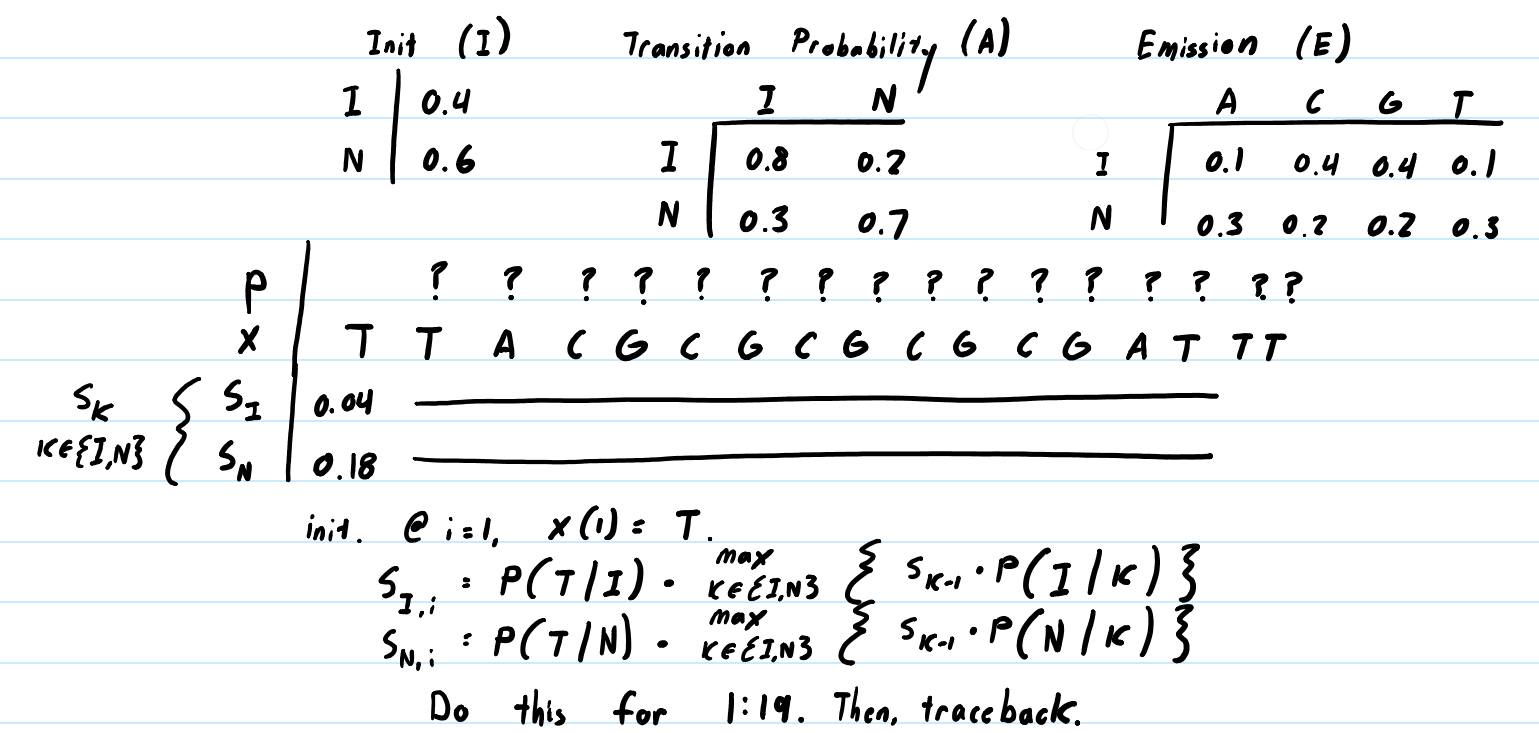 Init (I) Transition Probability (A) Emission (E)
I N A C G T
I 0.4 I 0.8 0.2 I 0.1 0.4 0.4 0.1
N 0.6 N 0.3 0.7 N 0.3 0.2 0.2 0.3
P ? ? ? ? ? ? ? ? ? ? ? ? ? ? ? ?
X T T A C G C G C G C G C G A T T T
S_K K∈{I,N} { S_I 0.04
S_N 0.18
init. @ i=1, X(1) = T.
S_I,i = P(T/I) · max K∈{I,N} { S_K-1 · P(I/K) }
S_N,i = P(T/N) · max K∈{I,N} { S_K-1 · P(N/K) }
Do this for 1:19. Then, traceback.